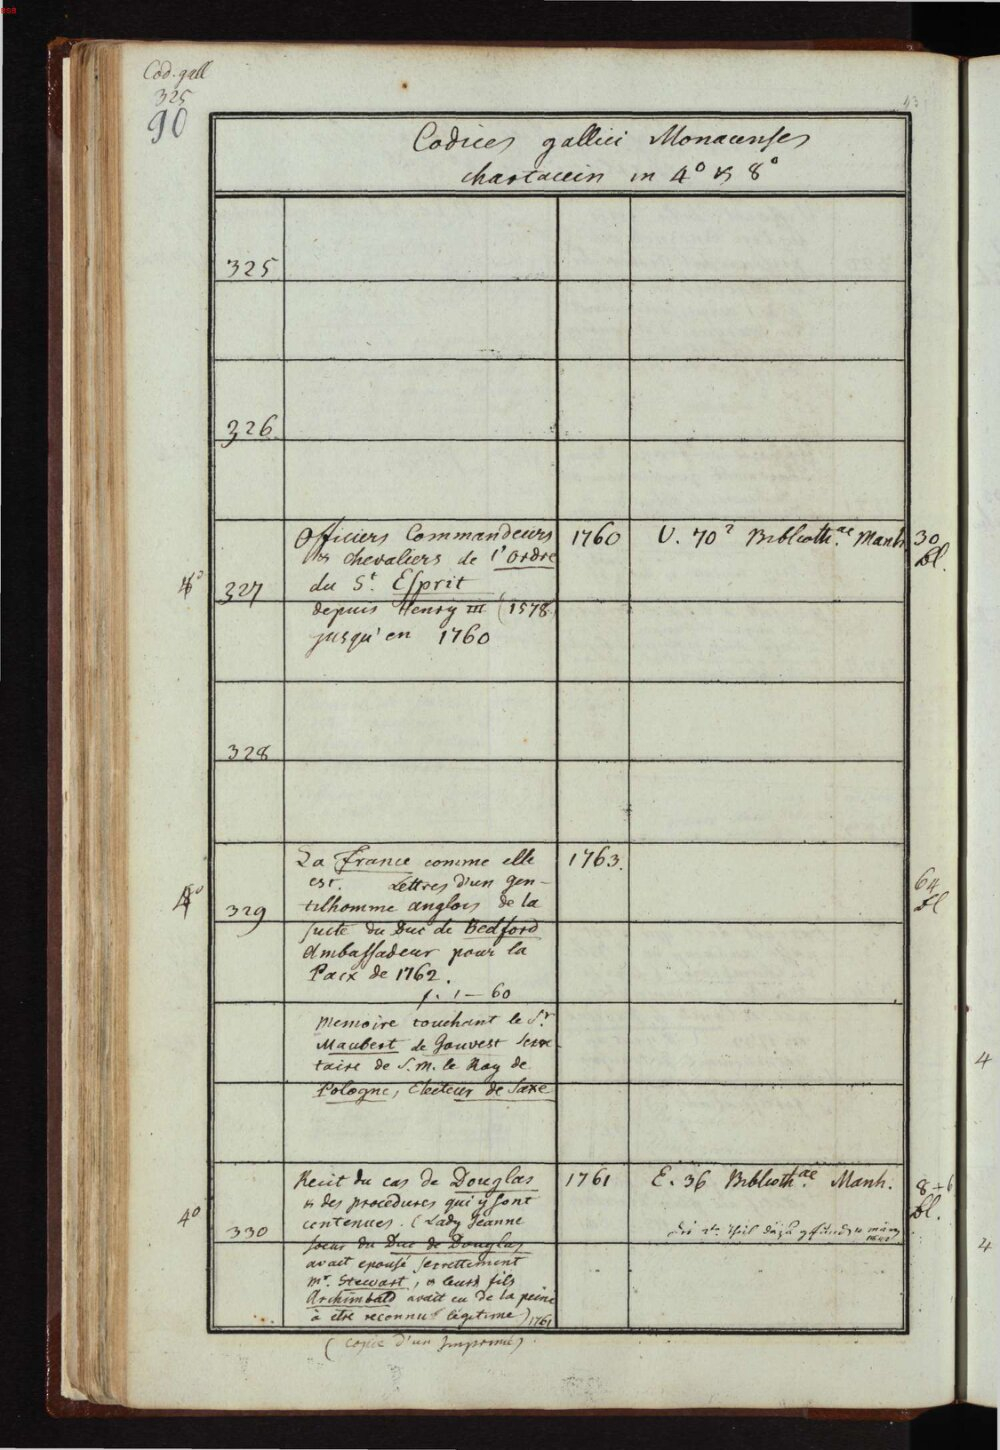 Cod. gall
325
90
43
Codices gallici Monacenses
chartacein in 4° & 8°
325
326
4°
327
Officiers Commandeurs
& chevaliers de l'ordre
du St. Esprit
depuis Henry III (1578
jusqu'en 1760
1760
U. 70² Biblioth.ae Manh
30
bl.
328
4°
329
La France comme elle
est. Lettres d'un gen-
tilhomme anglois de la
suite du Duc de Bedford
Ambassadeur pour la
Paix de 1762.
f. 1–60
Memoire touchant le Sr.
Maubert de Gouvest Secre
taire de S. M. le Roy de
Pologne, Electeur de Saxe
1763.
64
bl
4°
330
Recit du cas de Douglas
& des procedures qui y sont
contenues. (Lady Jeanne
soeur du Duc de Douglas
avait epousé secrettement
mr. Stewart, & leurs fils
Archimbald avait eu de la peine
à etre reconnu legitime) 1761
(copie d'un Imprimé)
1761
E. 36 Biblioth.ae Manh.
8+6
bl.
4
4